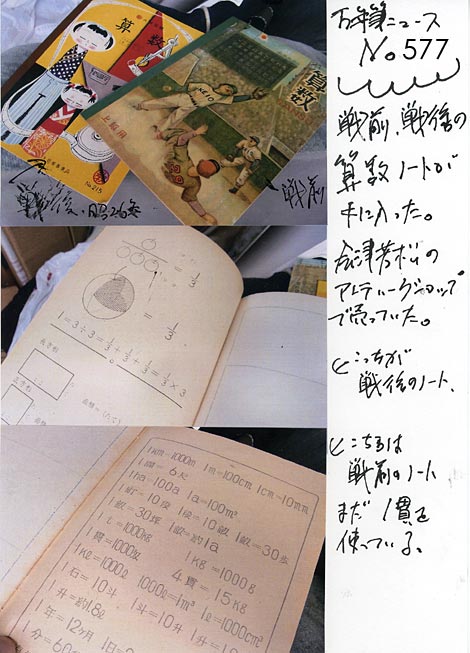 万年筆ニュース
No 577
戦前、戦後の
算数ノートが
手に入った。
会津若松の
アンティークショップ
で売っていた。
こっちが
戦後のノート、
こちらは
戦前のノート
まだ1貫を
使っている。
算数
No.215
戦後、昭26年
算数
上級用
戦前
1/3
1/3
1=3÷3=1/3+1/3+1/3=1/3×3
長方形
面積=(たて)
1km=1000m 1m=100cm 1cm=10mm
1間=6尺
1ha=100a 1a=100m²
1町=10段 1段=10畝 1畝=30歩
1畝=30坪 1畝=約1a
1t=1000kg 1kg=1000g
1貫=1000匁 4貫=15kg
1kl=1000l 1000l=1m³ 1l=1000cm³
1石=10斗 1斗=10升 1升=10
1升=約1.8l
1年=12ヶ月 1日=2
1分=60